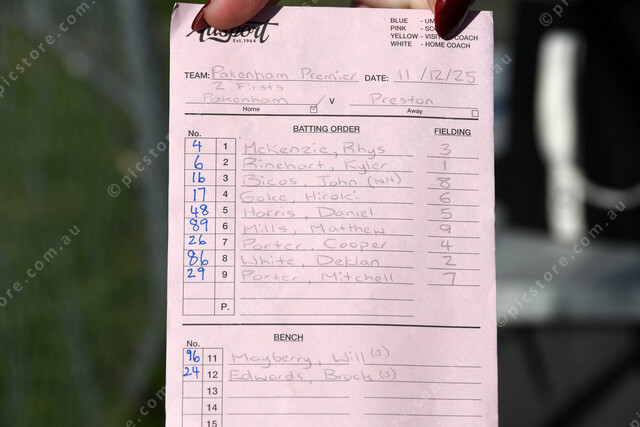 Ausport
Est. 1964
BLUE - UM
PINK - SC
YELLOW - VISIT COACH
WHITE - HOME COACH
TEAM: Pakenham Premier DATE: 11/12/25
2 Firsts
Pakenham v Preston
Home Away
No. BATTING ORDER FIELDING
4 1 McKenzie, Rhys 3
6 2 Rinehart, Kyler 1
16 3 Bicos, John (NN) 8
17 4 Goke, Hiroki 6
48 5 Harris, Daniel 5
89 6 Mills, Matthew 9
26 7 Porter, Cooper 4
86 8 White, Deklan 2
29 9 Porter, Mitchell 7
P.
No. BENCH
96 11 Mayberry, Will (J)
24 12 Edwards, Brock (J)
13
14
15
© picstore.com.au